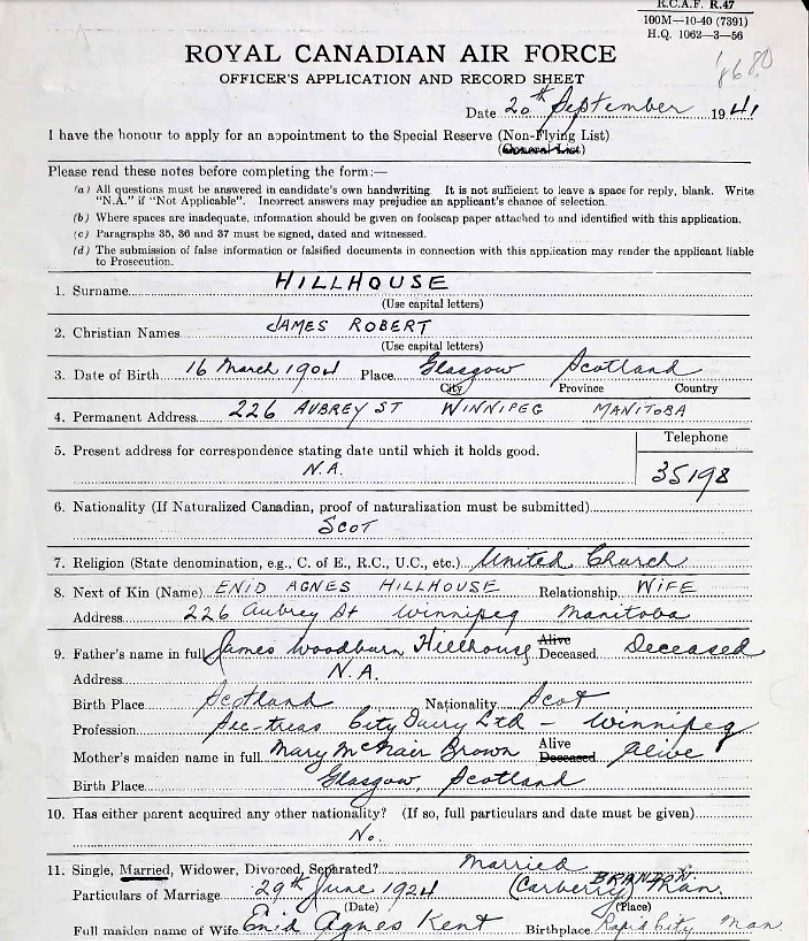 R.C.A.F. R.47
100M—10-40 (7391)
H.Q. 1062—3—56
ROYAL CANADIAN AIR FORCE
OFFICER'S APPLICATION AND RECORD SHEET
Date 20th September 1941
I have the honour to apply for an appointment to the Special Reserve (Non-Flying List)
(General List)
Please read these notes before completing the form:—
(a) All questions must be answered in candidate's own handwriting. It is not sufficient to leave a space for reply, blank. Write
"N.A." if "Not Applicable". Incorrect answers may prejudice an applicant's chance of selection.
(b) Where spaces are inadequate, information should be given on foolscap paper attached to and identified with this application.
(c) Paragraphs 35, 36 and 37 must be signed, dated and witnessed.
(d) The submission of false information or falsified documents in connection with this application may render the applicant liable
to Prosecution.
1. Surname HILLHOUSE
(Use capital letters)
2. Christian Names JAMES ROBERT
(Use capital letters)
3. Date of Birth 16 March 1904 Place Glasgow Scotland
City Province Country
4. Permanent Address 226 AUBREY ST WINNIPEG MANITOBA
Telephone
5. Present address for correspondence stating date until which it holds good.
N.A. 35198
6. Nationality (If Naturalized Canadian, proof of naturalization must be submitted)
SCOT
7. Religion (State denomination, e.g., C. of E., R.C., U.C., etc.) United Church
8. Next of Kin (Name) ENID AGNES HILLHOUSE Relationship WIFE
Address 226 Aubrey St Winnipeg Manitoba
9. Father's name in full James Woodburn Hillhouse Alive Deceased Deceased
Address N.A.
Birth Place Scotland Nationality Scot
Profession Sec-treas City Dairy Ltd - Winnipeg
Mother's maiden name in full Mary McNair Brown Alive Deceased Alive
Birth Place Glasgow, Scotland
10. Has either parent acquired any other nationality? (If so, full particulars and date must be given)
No.
11. Single, Married, Widower, Divorced, Separated? Married
Particulars of Marriage 29th June 1924 (Carberry) BRANDON. Man.
(Date) (Place)
Full maiden name of Wife Enid Agnes Kent Birthplace Rapid City Man.